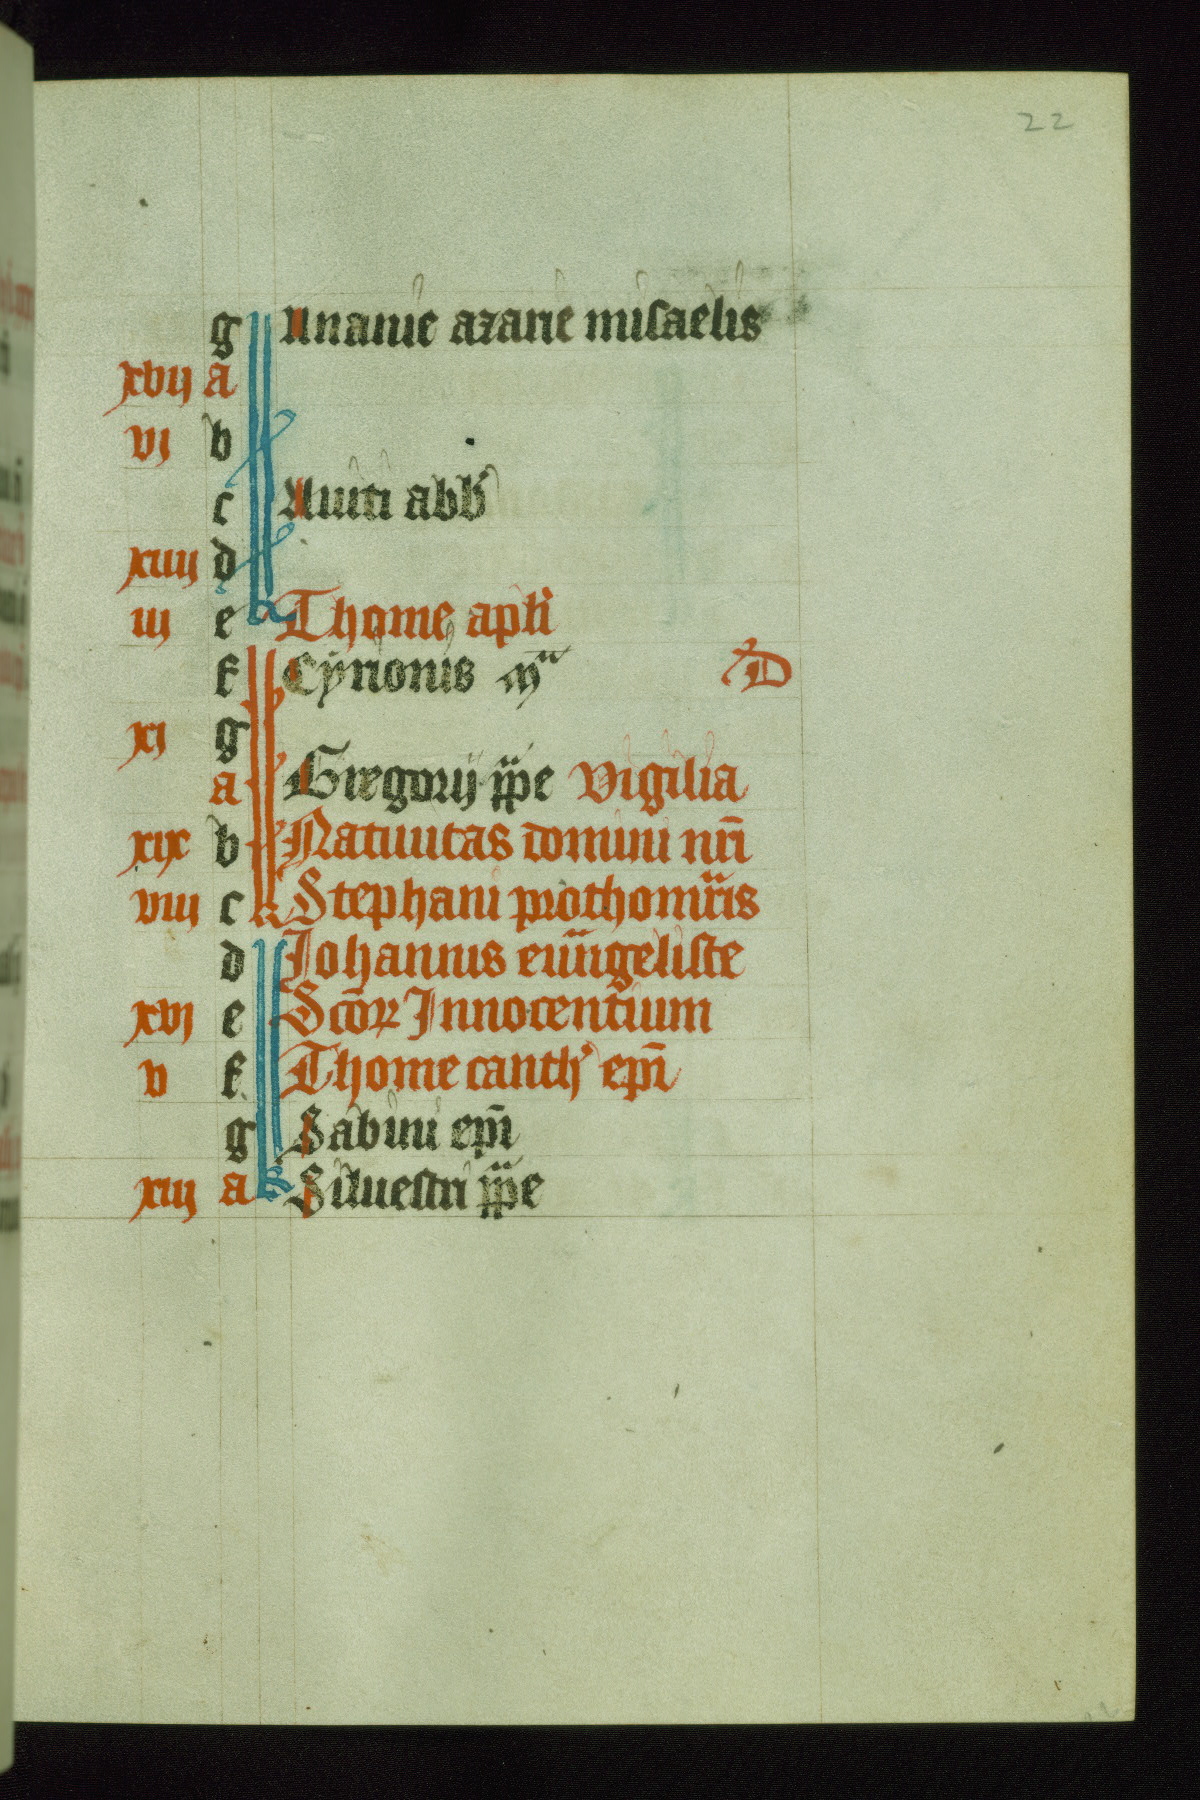 22
g Ananie azarie misaelis
xvij a
vj b
c Auiti abb'
xiiij d
iij e Thome apl'i
f Cyrionis m̄r D
xj g
a Gregorij ppe vigilia
xix b Natiuitas domini nr̄i
viij c Stephani prothomr̄is
d Johannis euu̅ngeliste
xvj e Sc̄oꝝ Innocentium
v f Thome canth' ep̄i
g Sabini ep̄i
xiij a Siluestri ppe